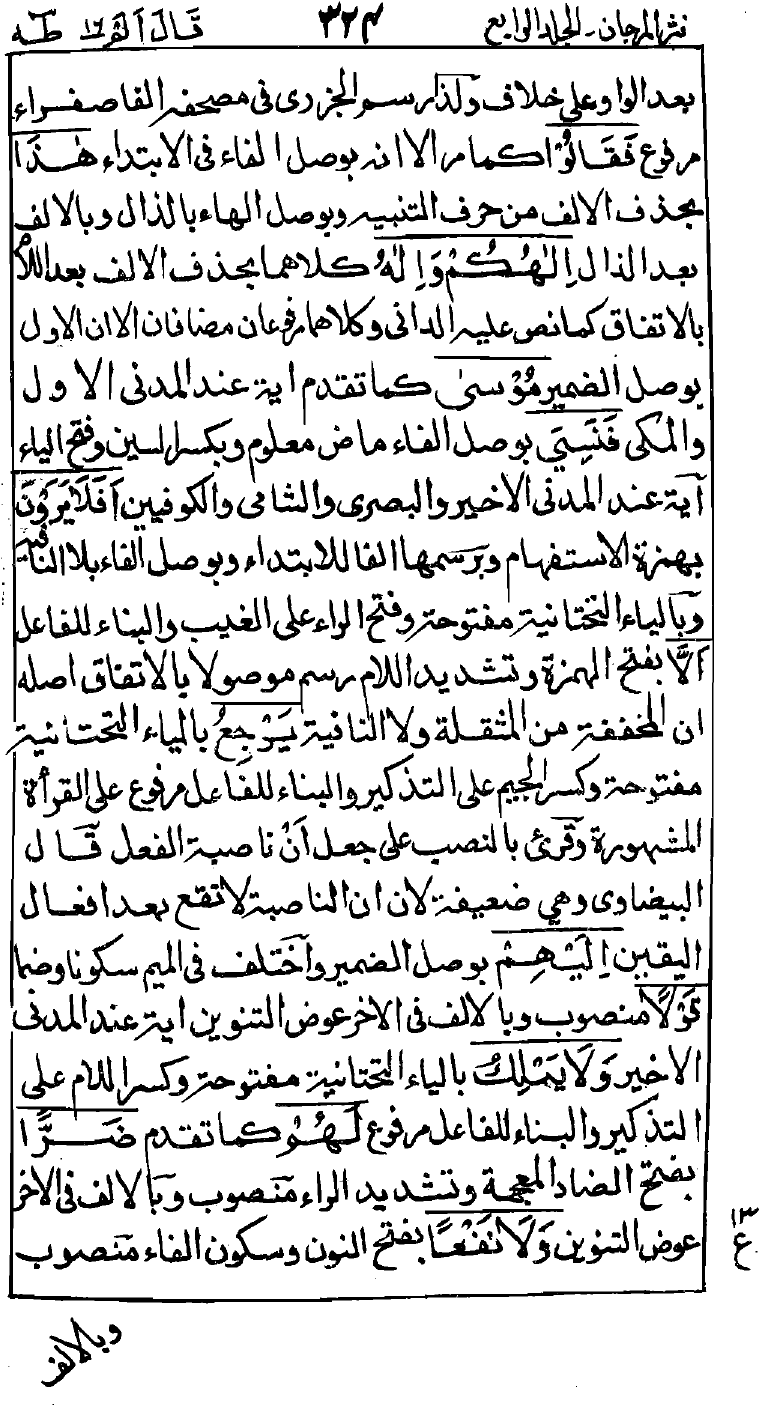 نثر المرجان - الجلد الرابع ٣٢٤ قَالَ اَلَمْ ١٦ طٰهٰ
بعد الواو على خلاف ولذا رسم الجزرى فى مصحفه الفا صفراء
مرفوع فَقَالُوْا كما مر الا انه بوصل الفاء فى الابتداء هٰذَا
بحذف الالف من حرف التنبيه وبوصل الهاء بالذال وبالالف
بعد الذال اِلٰهُكُمْ وَاِلٰهُ كلاهما بحذف الالف بعد اللام
بالاتفاق كما نص عليه الدانى وكلاهما مرفوعان مضافان الا ان الاول
بوصل الضمير مُوْسىٰ كما تقدم اية عند المدنى الاول
والمكى فَنَسِيَ بوصل الفاء ماض معلوم وبكسر السين وفتح الياء
آية عند المدنى الاخير والبصرى والشامى والكوفيين اَفَلَا يَرَوْنَ
بهمزة الاستفهام وبرسمها الفا للابتداء وبوصل الفاء بلا النافية
وبالياء التحتانية مفتوحة وفتح الراء على الغيب والبناء للفاعل
اَلَّا بفتح الهمزة وتشديد اللام رسم موصولا بالاتفاق اصله
ان المخففة من المثقلة ولا النافية يَرْجِعُ بالياء التحتانية
مفتوحة وكسر الجيم على التذكير والبناء للفاعل مرفوع على القرأة
المشهورة وقرئ بالنصب على جعل اَنْ ناصبة الفعل قال
البيضاوى وهي ضعيفة لان ان الناصبة لا تقع بعد افعال
اليقين اِلَيْهِمْ بوصل الضمير واختلف فى الميم سكونا وضما
قَوْلًا منصوب وبالالف فى الاخر عوض التنوين اية عند المدنى
الاخير وَلَا يَمْلِكُ بالياء التحتانية مفتوحة وكسر اللام على
التذكير والبناء للفاعل مرفوع لَهُمْ كما تقدم ضَرًّا
بفتح الضاد المعجمة وتشديد الراء منصوب وبالالف فى الاخر
عوض التنوين وَلَا نَفْعًا بفتح النون وسكون الفاء منصوب
١٣
ع
وبالالف